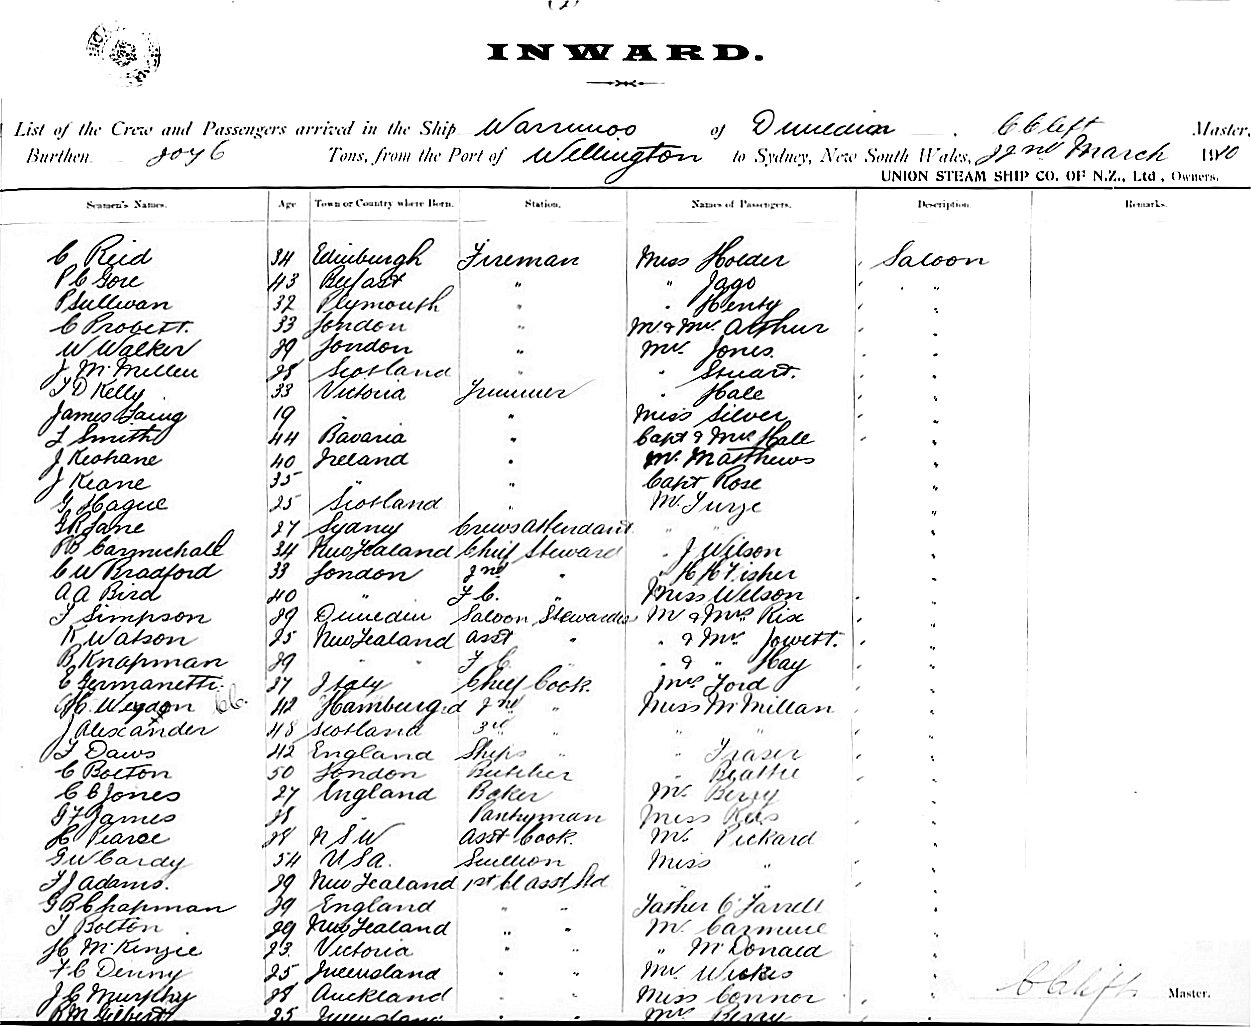 INWARD.
List of the Crew and Passengers arrived in the Ship Warrimoo of Dunedin C Clift Master,
Burthen 2076 Tons, from the Port of Wellington to Sydney, New South Wales, 22nd March 1910
UNION STEAM SHIP CO. OF N.Z., Ltd, Owners.
Seamen's Names. Age Town or Country where Born. Station. Names of Passengers. Description. Remarks.
C Reid 34 Edinburgh Fireman Miss Holder Saloon
P C Gore 43 Belfast " " Jago "
P Sullivan 32 Plymouth " " Henty "
C Probett. 33 London " Mr & Mrs Arthur "
W Walker 29 London " Mr Jones "
J McMillen 28 Scotland " " Stuart. "
T D Kelly 33 Victoria Trimmer " Hale "
James Laing 19 " " Miss Silver "
F Smith 44 Bavaria " Capt & Mrs Hall "
J Keohane 40 Ireland " Mr Matthews "
J Keane 35 " " Capt Rose "
G Hague 25 Scotland " Mr "
G R Lane 27 Sydney Crews attendant " " "
P B Carmichall 34 New Zealand Chief Steward " J Wilson "
C W Bradford 33 London 2nd " " H H Fisher "
A A Bird 40 " F. C. " Miss Wilson "
F Simpson 29 Dunedin Saloon Stewardess Mr & Mrs Rix "
K Watson 25 New Zealand asst " " & Mrs Jowett. "
B Knapman 29 " " F C. " & " Hay "
C Germanetti 27 Italy Chief Cook. Mrs Ford "
H. Weydon CC. 42 Hamburg 2nd " Miss McMillan "
J Alexander 48 Scotland 3rd " " " "
F Daws 42 England Ships " " Fraser "
C Bolton 50 London Butcher " Beattie "
C B Jones 27 England Baker Mr Berry "
G F James 28 Pantryman Miss Rees "
H Pearce 28 N S W asst Cook. Mr Pickard "
G W Cardy 54 U S A. Scullion Miss " "
F J Adams. 29 New Zealand 1st Cl asst Std " "
G B Chapman 29 England " " Father O'Farrell "
T Bolton 29 New Zealand " " Mr Carmine "
H McKenzie 23 Victoria " " " McDonald "
F C Denny 25 Queensland " " Mr Wickes "
J C Murphy 28 Auckland " " Miss Connor "
R M Gilbert 25 Queensland " " Mrs Berry "
C Clift Master.